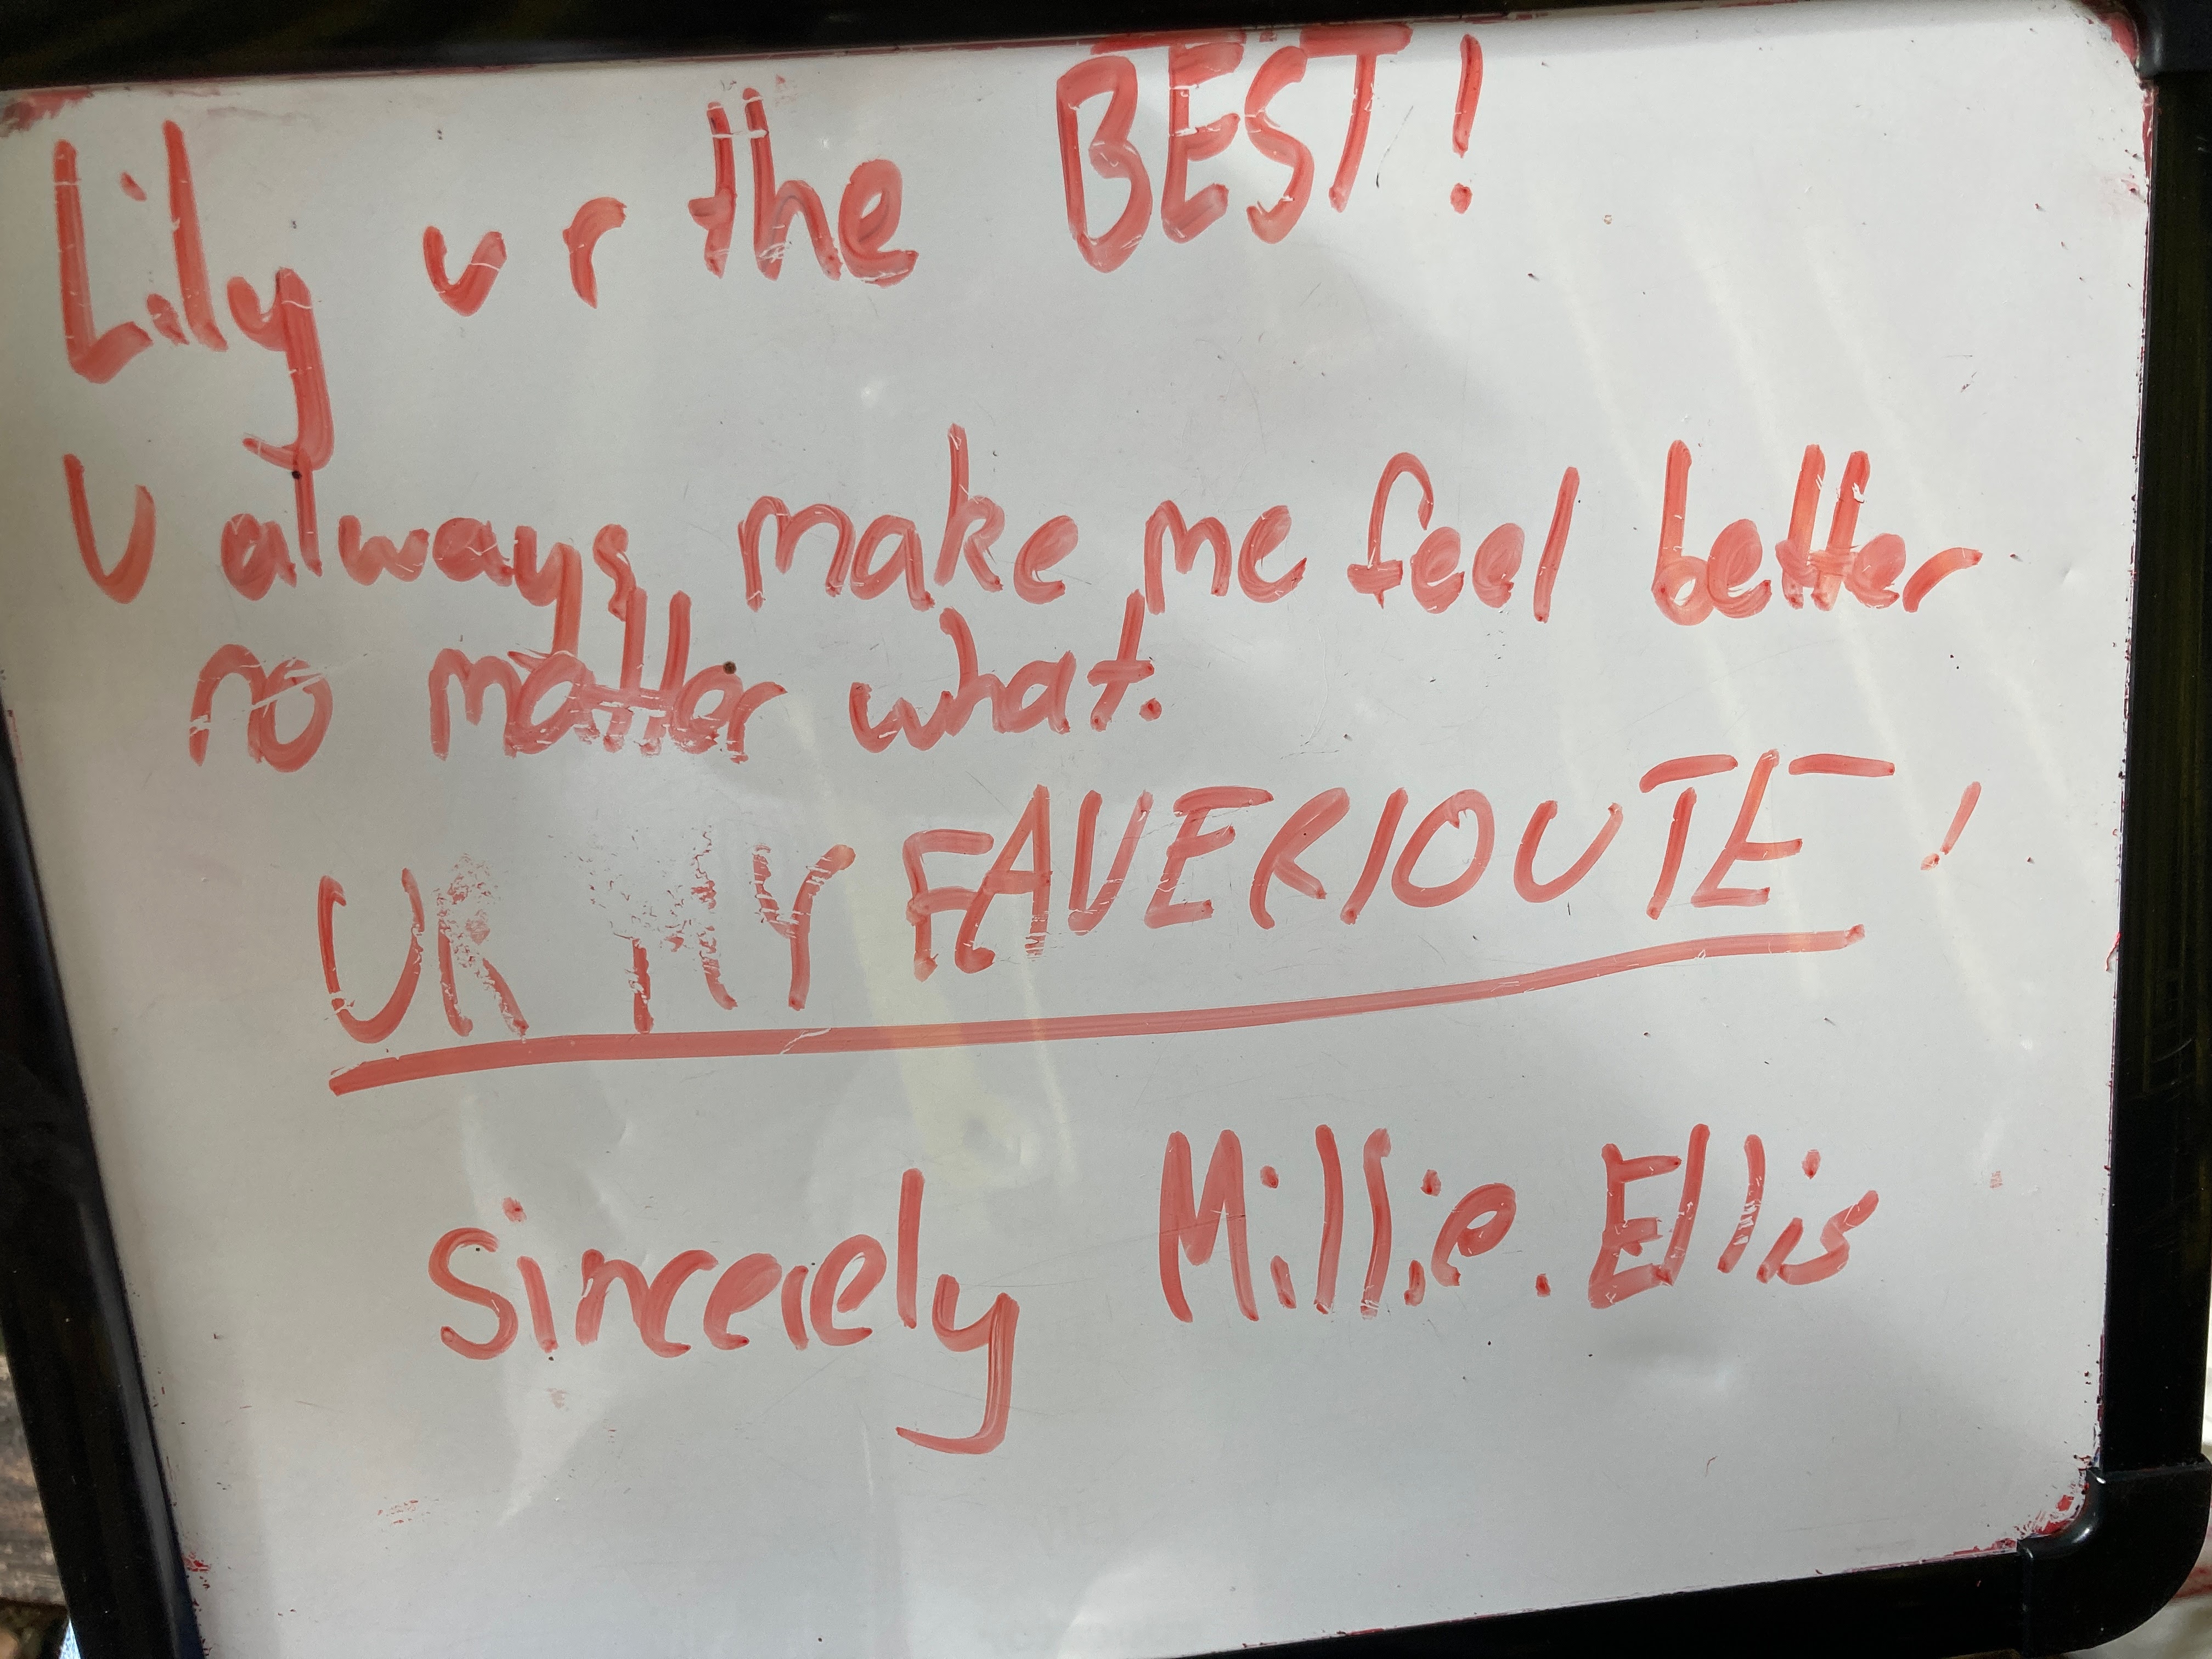 Lily u r the BEST!
U always make me feel better
no matter what.
UR MY FAVERIOUTE!
Sincerely Millie. Ellis